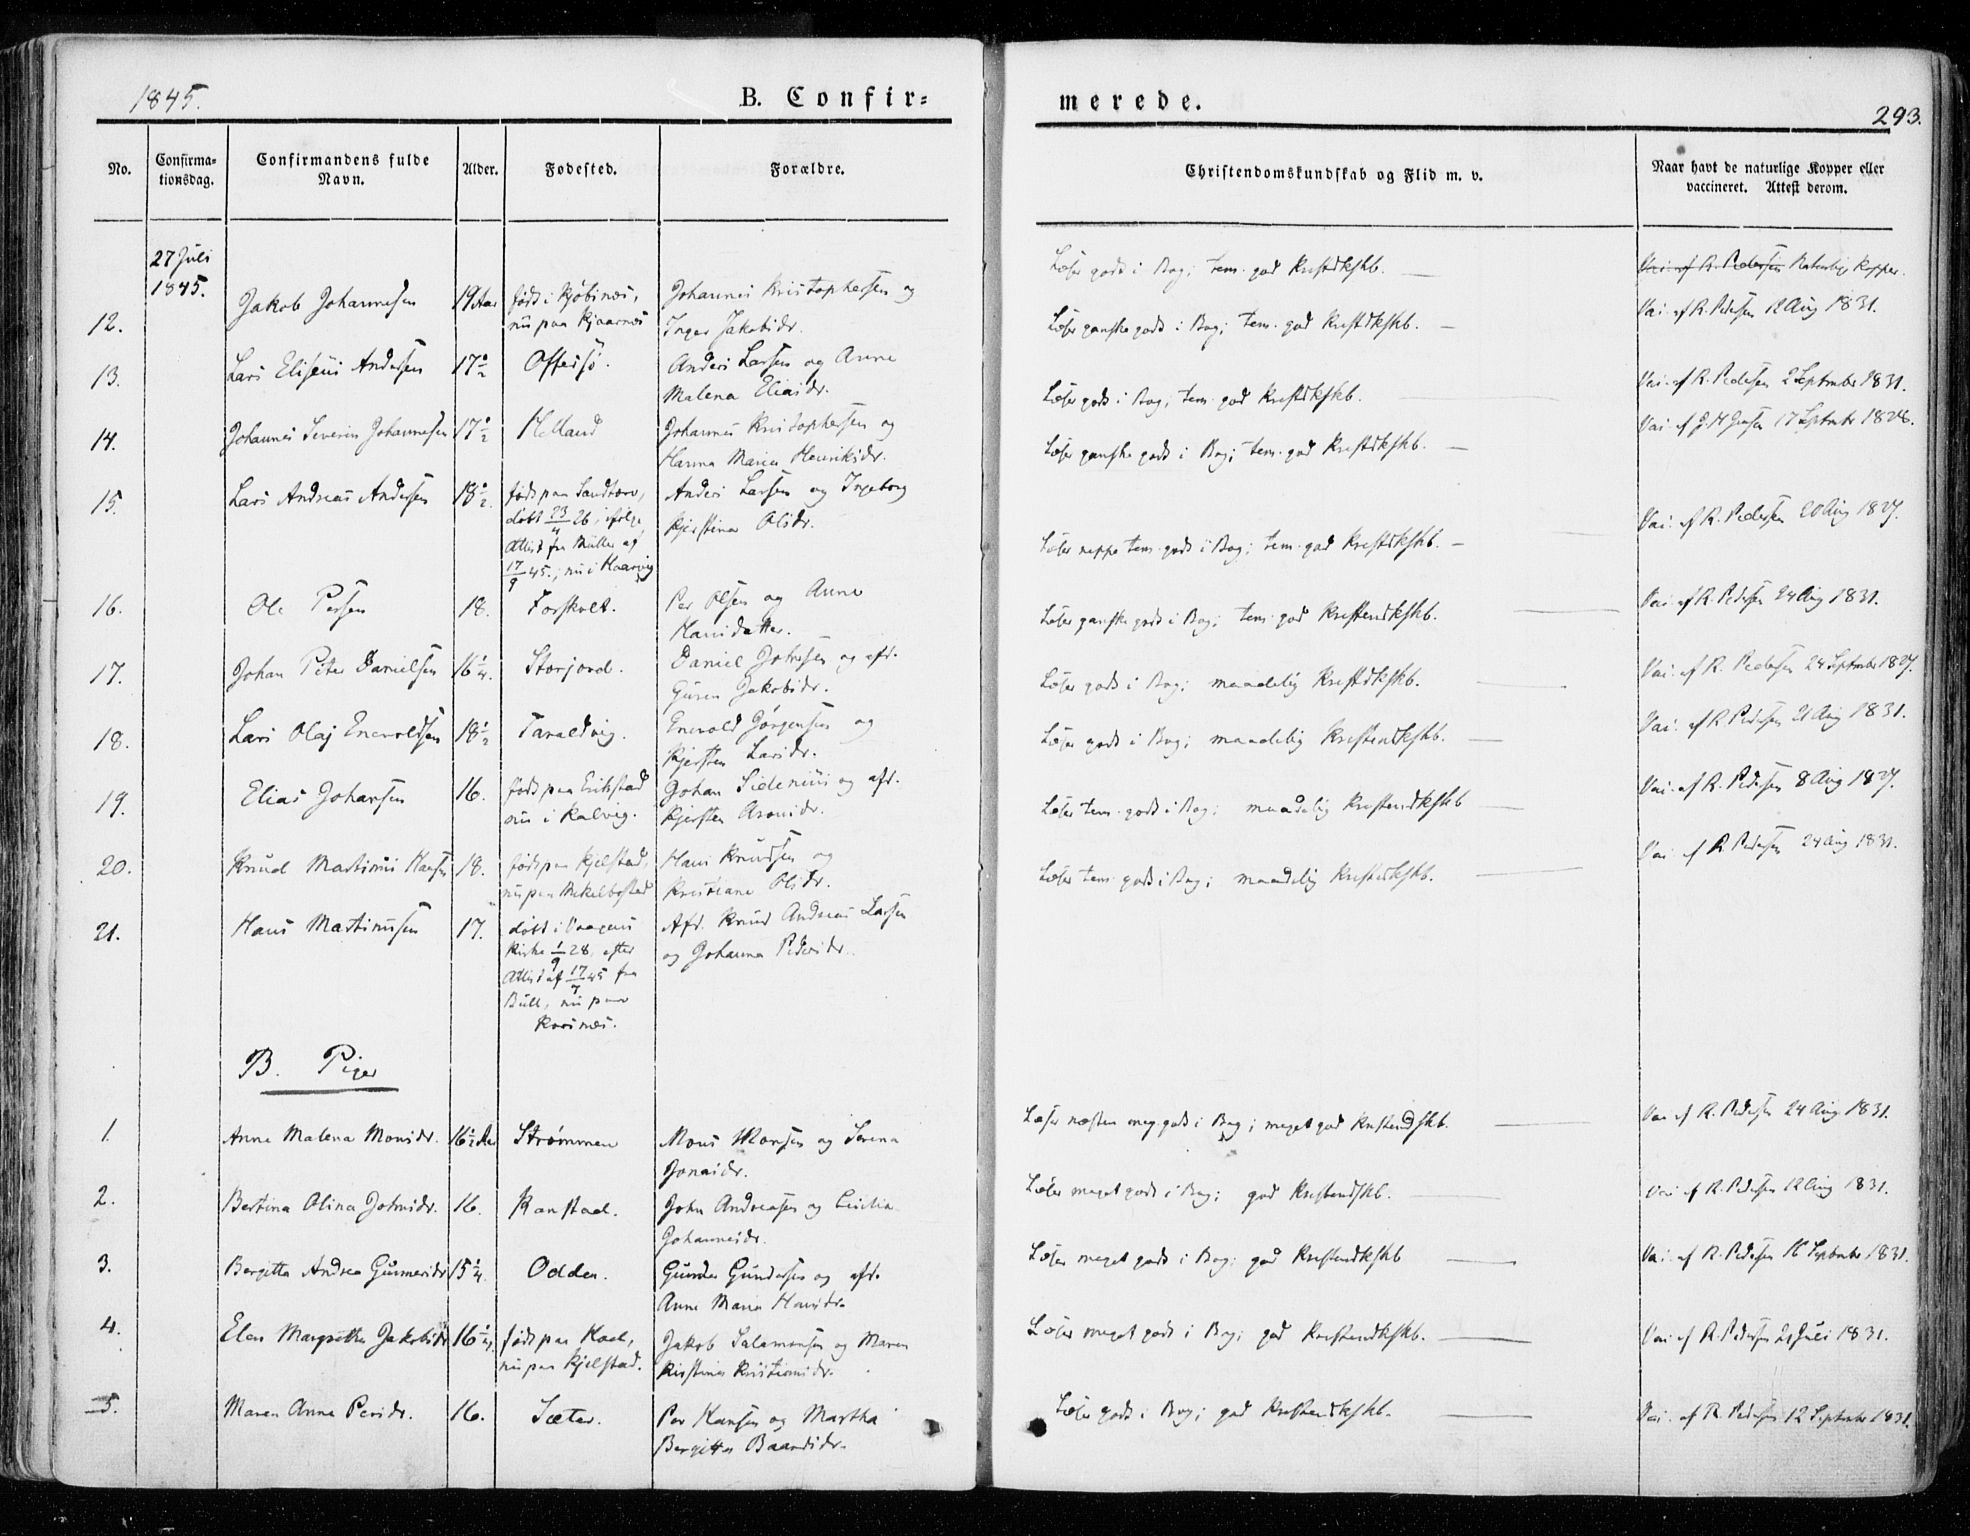 1845.
B. Confir=
merede.
293.
No.
Confirma-
tionsdag.
Confirmandens fulde
Navn.
Alder.
Fødested.
Forældre.
Christendomskundskab og Flid m. v.
Naar havt de naturlige Kopper eller
vaccineret. Attest derom.
27 Juli
1845.
12.
Jakob Johannesen
19 Aar
født i Kjøbsnæs,
nu paa Kjaarnæs
Johannes Kristophersen og
Inger Jakobsdr.
Læser godt i Bog; tem. god Kristdkskb.
Vai. af R. Pedersen Naturlige Kopper.
13.
Lars Eliseus Andersen
17½
Offersø.
Anders Larsen og Anne
Malena Eliasdr.
Læser ganske godt i Bog; tem. god Kristdkskb.
Vai. af R. Pedersen 12 Aug 1831.
14.
Johannes Severin Johannesen
17½
Helland
Johannes Kristophersen og
Hanna Maria Henriksdr.
Læser godt i Bog; tem. god Kristdkskb.
Vai. af R. Pedersen 2 September 1831.
15.
Lars Andreas Andersen
18½.
født paa Sandtorv,
døbt 23/4 26, ifølge
Attest fra Müller af
17/9 45., nu i Kaarvig
Anders Larsen og Ingeborg
Kjerstina Olsdr.
Læser ganske godt i Bog; tem. god Kristdkskb.
Vai. af J. H. Jensen 17 September 1828.
16.
Ole Persen
18.
Forskolt.
Per Olsen og Anne
Hansdatter.
Læser neppe tem. godt i Bog; tem. god Kristdkskb.
Vai. af R. Pedersen 20 Aug 1827.
17.
Johan Peter Danielsen
16¼.
Storjord.
Daniel Johnsen og afd.
Guren Jakobsdr.
Læser ganske godt i Bog; tem. god Kristendkskb.
Vai. af R. Pedersen 24 Aug 1831.
18.
Lars Olaj Enevoldsen
18½
Taraldvig.
Enevold Jørgensen og
Kjersten Larsdr.
Læser godt i Bog; maadelig Kristdkskb.
Vai. af R. Pedersen 24 September 1827.
19.
Elias Johansen
16.
født paa Erikstad
nu i Kalvig.
Johan Sidenius og afd.
Kjersten Aronsdr.
Læser godt i Bog; maadelig Kristendkskb.
Vai. af R. Pedersen 21 Aug 1831.
20.
Knud Martinus Hansen
18.
født paa Kjelstad,
nu paa Mekelbostad
Hans Knudsen og
Kristiane Olsdr.
Læser tem. godt i Bog; maadelig Kristendkskb
Vai. af R. Pedersen 8 Aug 1827.
21.
Hans Martinussen
17.
døbt i Vaagens
Kirke 1/9 28, efter
Attest af 17/7 45 fra
Bull, nu paa
Korsnæs.
Afd. Knud Andreas Larsen
og Johanna Pedersdr.
Læser tem. godt i Bog; maadelig Kristdkskb.
Vai. af R. Pedersen 24 Aug 1831.
B. Piger
1.
Anne Malena Monsdr.
16½ Aar
Strømmen
Mons Monsen og Serena
Jonasdr.
Læser næsten meg. godt i Bog; meget god Kristendskb.
Vai. af R. Pedersen 24 Aug 1831.
2.
Bertina Olina Johnsdr.
16.
Ranstad.
John Andreasen og Cicilia
Johannesdr.
Læser meget godt i Bog; god Kristendskb.
Vai. af R. Pedersen 12 Aug 1831.
3.
Bergitta Andrea Gunnersdr
15¼.
Odden.
Gunder Gundersen og afd.
Anne Maria Hansdr.
Læser meget godt i Bog; god Kristendkskb
Vai. af R. Pedersen 16 September 1831.
4.
Elen Margretha Jakobsdr
16¼.
født paa Koel,
nu paa Kjelstad.
Jakob Salamonsen og Maren
Kirstina Kristiansdr.
Læser meget godt i Bog; god Kristendkskb.
Vai. af R. Pedersen 21 Juli 1831.
5.
Maren Anna Persdr.
16.
Sæter.
Per Hansen og Martha
Bergitta Baardsdr.
Læser godt i Bog; god Kristendkskb.
Vai. af R. Pedersen 12 September 1831.